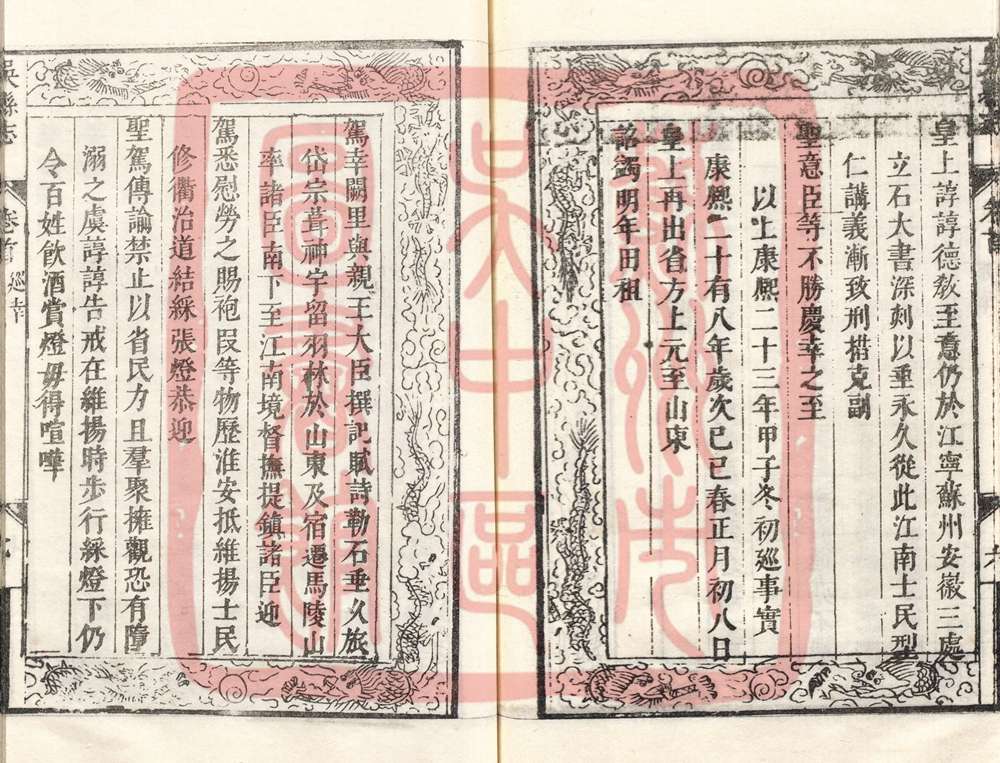 皇上諄諄德敎至意仍於江寧蘇州安徽三處
立石大書深刻以垂永久從此江南士民型
仁講義漸致刑措克副
聖意臣等不勝慶幸之至
以上康熙二十三年甲子冬初巡事實
康熙二十有八年歲次己巳春正月初八日
皇上再出省方上元至山東
詔蠲明年田租
駕幸闕里與親王大臣撰記賦詩勒石垂久旅
岱宗葺神宇留羽林於山東及宿遷馬陵山
率諸臣南下至江南境督撫提鎮諸臣迎
駕悉慰勞之賜袍段等物歷淮安抵維揚士民
修衢治道結綵張燈恭迎
聖駕傳諭禁止以省民力且羣聚擁觀恐有隕
溺之虞諄諄告戒在維揚時步行綵燈下仍
令百姓飮酒賞燈毋得喧嘩
吳縣志
卷首 巡幸
七
蘇州市
吳中區
圖書館